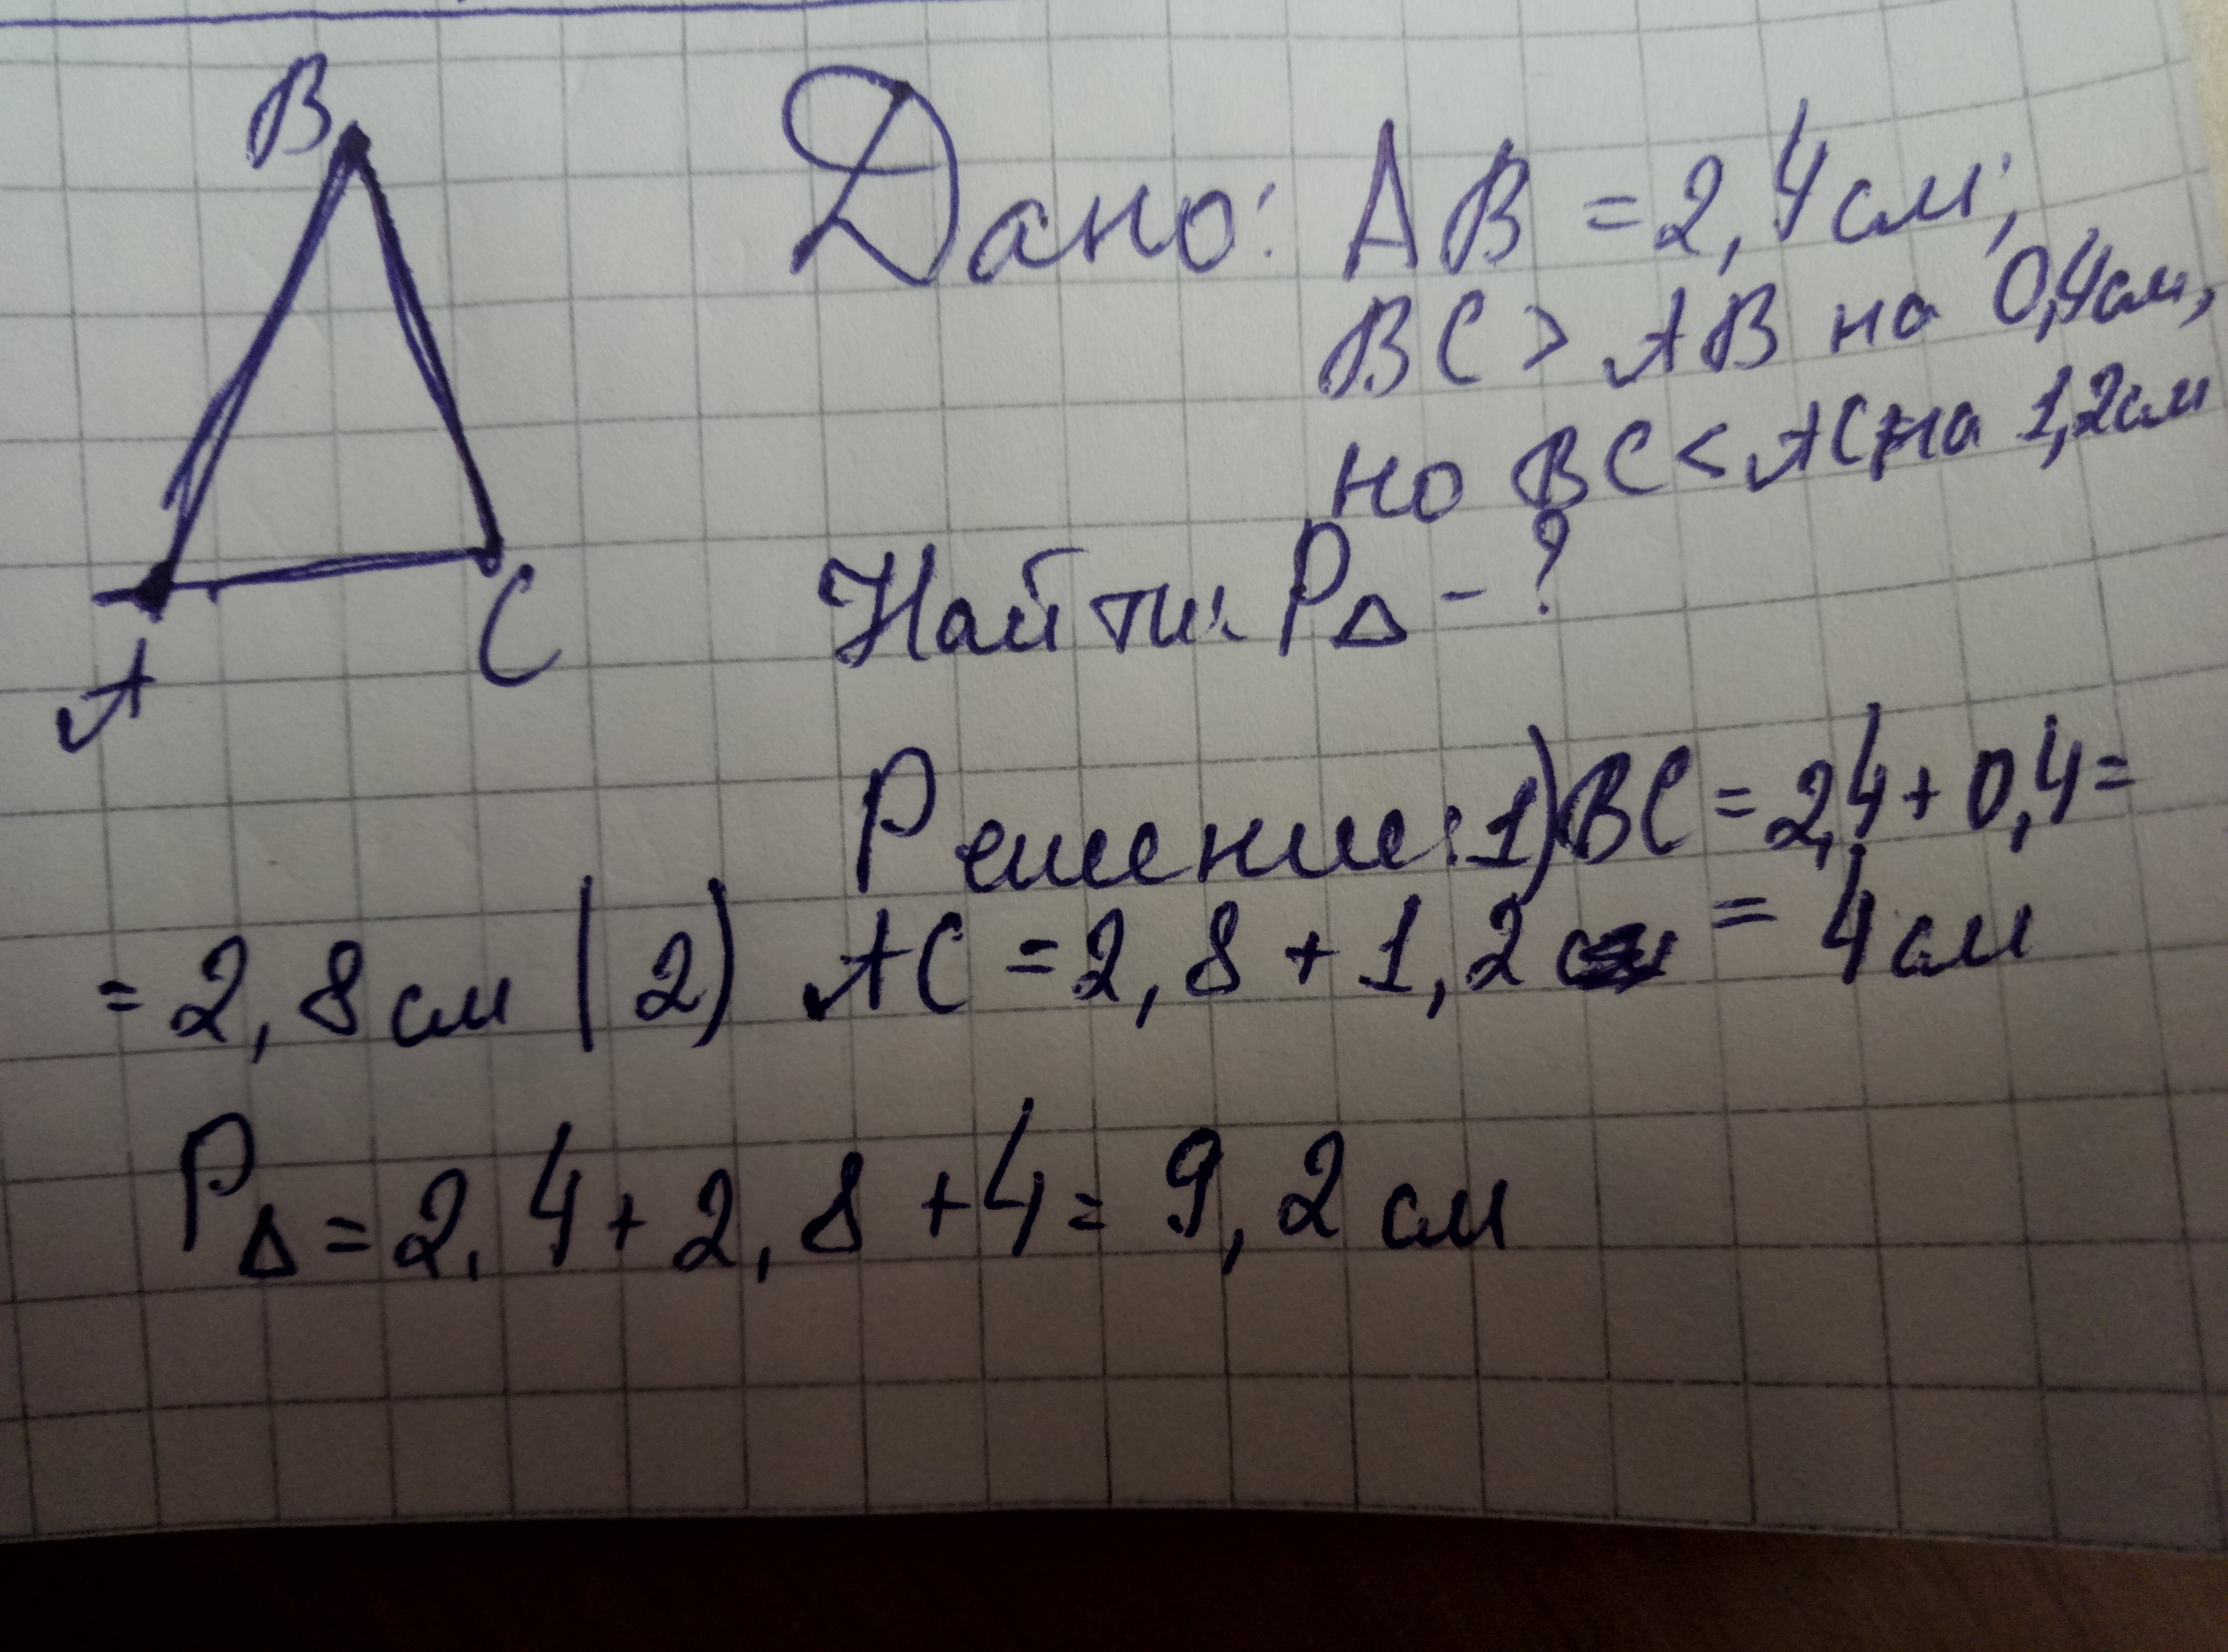 B
A
C
Дано: AB = 2,4 см;
BC > AB на 0,4 см,
но BC < AC на 1,2 см
Найти: P△ - ?
Решение: 1) BC = 2,4 + 0,4 =
= 2,8 см | 2) AC = 2,8 + 1,2 = 4 см
P△ = 2,4 + 2,8 + 4 = 9,2 см